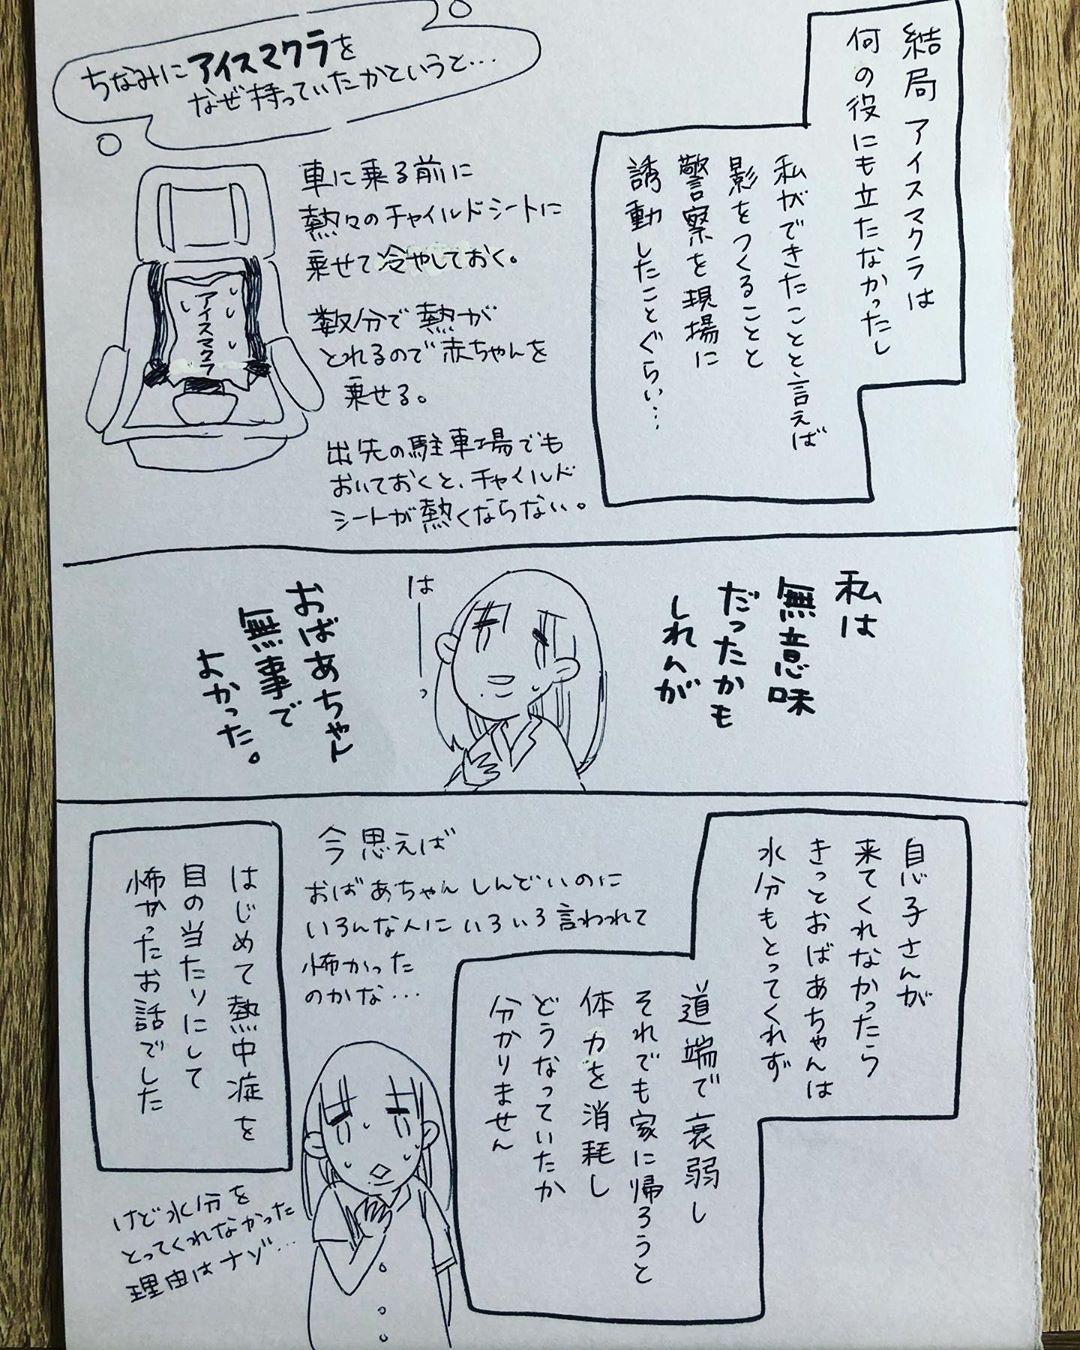 結局アイスマクラは
何の役にも立たなかったし
私ができたことと言えば
影をつくることと
警察を現場に
誘動したことぐらい…
ちなみにアイスマクラを
なぜ持っていたかというと…
車に乗る前に
熱々のチャイルドシートに
乗せて冷やしておく。
数分で熱が
とれるので赤ちゃんを
乗せる。
出先の駐車場でも
おいておくと、チャイルド
シートが熱くならない。
アイスマクラ
私は
無意味
だったかも
しれんが
はーっ
おばあちゃん
無事で
よかった。
息子さんが
来てくれなかったら
きっとおばあちゃんは
水分もとってくれず
道端で衰弱し
それでも家に帰ろうと
体力を消耗し
どうなっていたか
分かりません
今思えば
おばあちゃんしんどいのに
いろんな人にいろいろ言われて
怖かった
のかな…
はじめて熱中症を
目の当たりにして
怖かったお話でした
けど水分を
とってくれなかった
理由はナゾ…